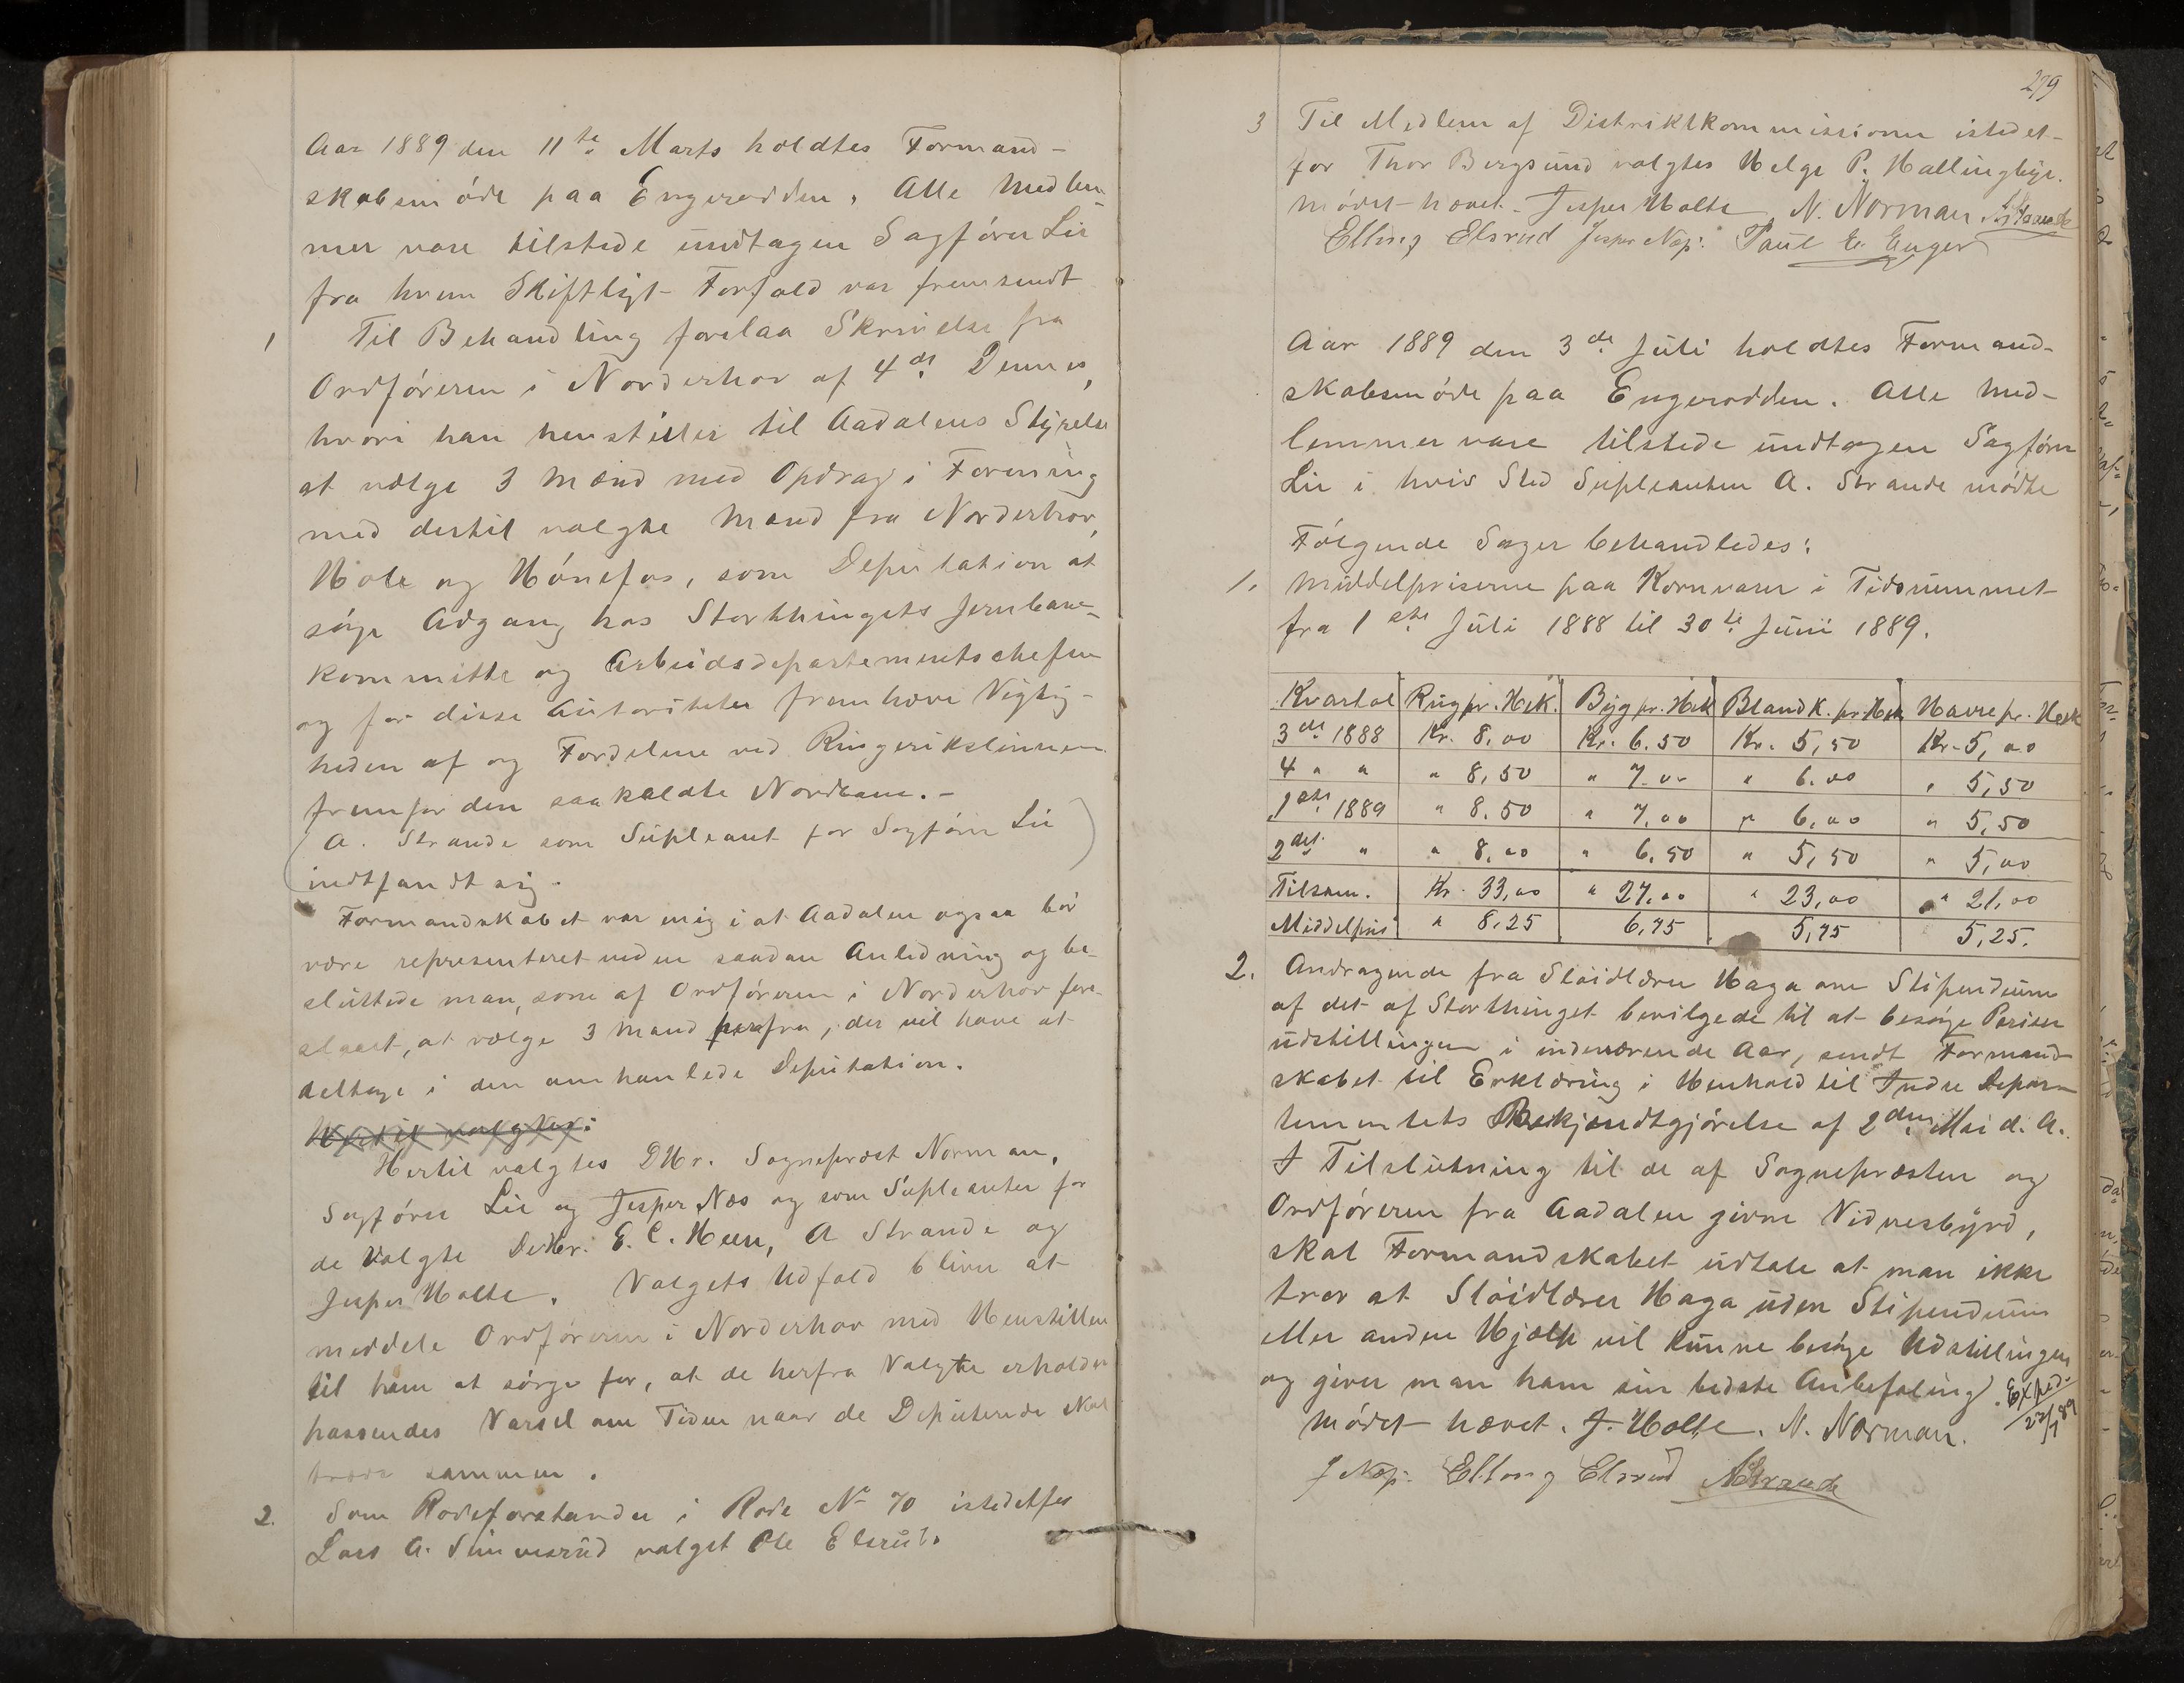 Aar 1889 den 11te Marts holdtes Formand-
skabsmöde paa Engerodden. Alle Medlem-
mer vare tilstede undtagen Sagförer Lie
fra hvem Skiftligt Forfald var fremsendt
1 Til Behandling forelaa Skrivelse fra
Ordföreren i Norderhov af 4de Dennes,
hvori han henstiller til Aadalens Styrelse
at vælge 3 Mænd med Opdrag i Forening
med dertil valgte Mænd fra Norderhov,
Hole og Hönefos, som Deputation at
söge Adgang hos Storthingets Jernbane-
kommitte og Arbeidsdepartementschefen
og for disse Autoriteter fremhæve Vigtig-
heden af og Fordelene ved Ringerikslinien
fremfor den saakaldte Nordbane.-
(A. Strande som Supleant for Sagförer Lie
indfandt sig.)
Formandskabet var enig i at Aadalen ogsaa bör
være representeret ved en saadan Anledning og be-
sluttede man, som af Ordföreren i Norderhov fore-
slaaet, at vælge 3 Mænd herfra, der vil have at
deltage i den omhanlede Deputation.
Hertil valgtes:
Hertil valgtes DHr. Sognepræst Norman,
Sagförer Lie og Jesper Næs og som Supleanter for
de Valgte DeHr. E. C. Heen, A Strande og
Jesper Holte. Valgets Udfald bliver at
meddele Ordföreren i Norderhov med Henstillen
til ham at sörge for, at de herfra Valgte erholder
passendes Varsel om Tiden naar de Deputerede skal
træde sammen.
2. Som Rodeforstander i Rode No 70 istedetfor
Lars A. valgst Ole Elsrud.
279
3 Til Medlem af Distriktkommissionen istedet-
for Thor Bergsund valgtes Helge P. Hallingbye.
Mödet hævet. Jesper Holte N. Norman AStrande
Elling Elsrud Jesper Næs. Paul E. Enger
Aar 1889 den 3de Juli holdtes Formand-
skabsmöde paa Engerodden. Alle Med-
lemmer vare tilstede undtagen Sagförer
Lie i hvis Sted Supleanten A. Strande mödte
Fölgende Sager behandledes:
1. Middelpriserne paa Kornvarer i Tidsrummet
fra 1ste Juli 1888 til 30te Juni 1889.
Kvartal Rug pr. Hek. Byg pr. Hek Blandk. pr. Hek Havre pr. Hek
3de 1888 Kr. 8,00 Kr. 6.50 Kr. 5,50 Kr. 5,00
4 " " " 8,50 " 7.00 " 6.00 " 5,50
1ste 1889 " 8.50 " 7,00 " 6,00 " 5,50
2det " " 8,00 " 6,50 " 5,50 " 5,00
Tilsam. Kr. 33,00 " 27,00 " 23,00 " 21,00
Middelpris " 8,25 6,75 5,75 5,25.
2. Andragende fra Slöidlærer Haga om Stipendium
af det af Storthinget bevilgede til at besöge Pariser
udstillingen i indeværende Aar, sendt Formand-
skabet til Erklæring i Henhold til Indre Depar-
tementets Bekjendtgjörelse af 2den Mai d. A.
I Tilslutning til de af Sognepræsten og
Ordföreren fra Aadalen givne Vidnesbyrd,
skal Formandskabet udtale at man ikke
tror at Slöidlærer Haga uden Stipendium
eller anden Hjælp vil kunne besöge Udstillingen
og giver man ham sin bedste Anbefaling. Exped.
Mödet hævet. J. Holte. N. Norman.
J Næs. Elling Elsrud AStrande